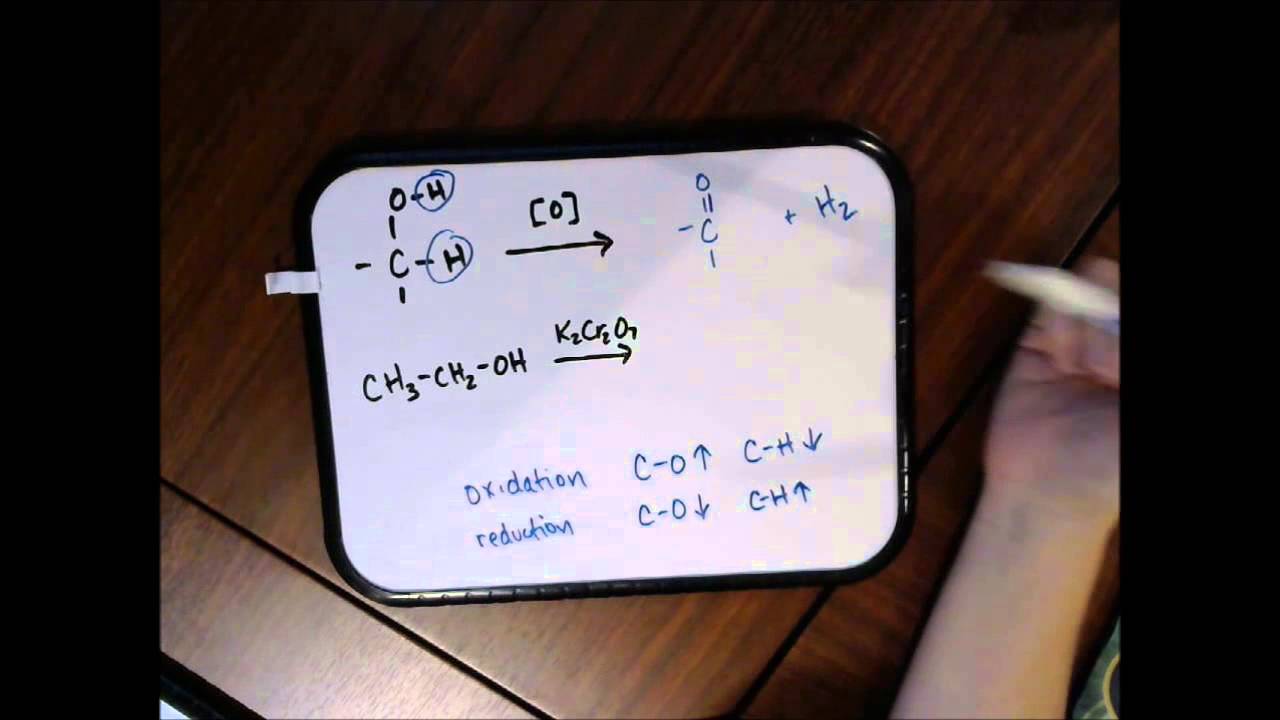 O-H [O] O
- C - H → - C + H₂
CH₃-CH₂-OH K₂Cr₂O₇ →
oxidation C-O↑ C-H↓
reduction C-O↓ C-H↑